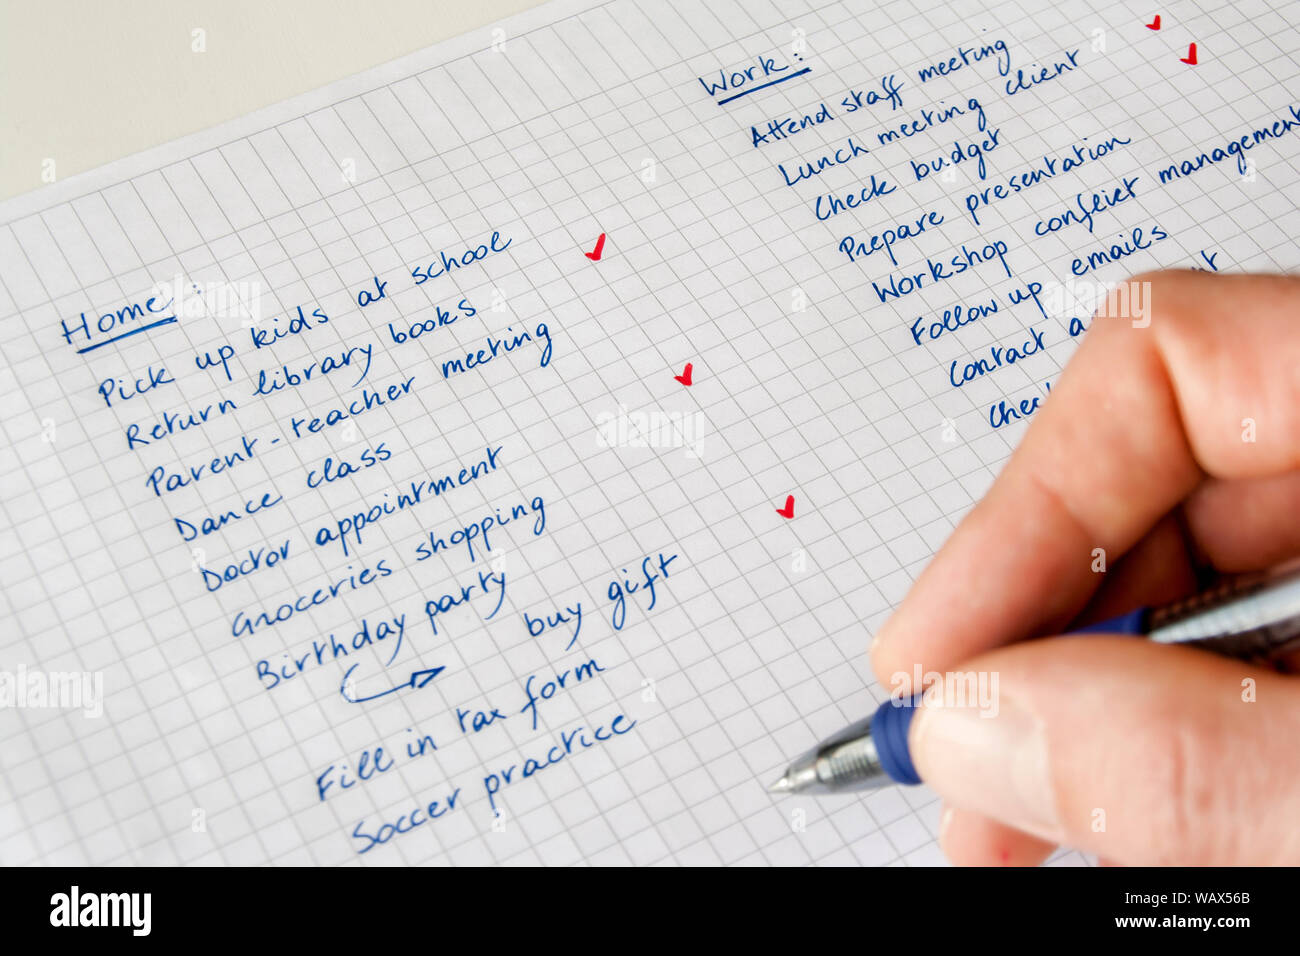 Home:
Pick up kids at school
Return library books
Parent-teacher meeting
Dance class
Doctor appointment
Groceries shopping
Birthday party
buy gift
Fill in tax form
Soccer practice
Work:
Attend staff meeting
Lunch meeting client
Check budget
Prepare presentation
Workshop conflict management
Follow up emails
Contact
alamy
Image ID: WAX56B
www.alamy.com